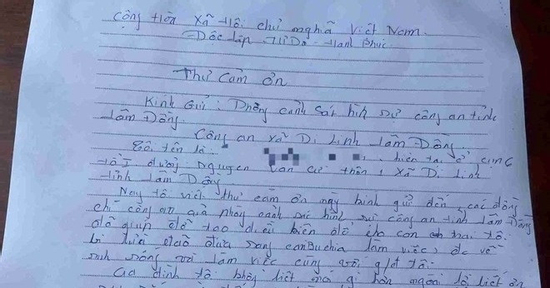 Cộng Hòa Xã Hội chủ nghĩa Việt Nam.
Độc lập - Tự Do - Hạnh phúc
Thư Cảm ơn
Kính Gửi: Phòng cảnh sát hình sự công an tỉnh
Lâm Đồng.
Công an Xã Di Linh Lâm Đồng
Tôi tên là hiện tại ở
tổ đường Nguyễn Văn Cừ thôn, Xã Di Linh
tỉnh Lâm Đồng
Nay tô viết thư cảm ơn này kính gửi đến các đồng
chí công an phòng cảnh sát hình sự công an tỉnh Lâm Đồng
đã giúp đỡ tạo điều kiện để cho con trai tô.
bị lừa đưa sang canBuchia làm việc, đc về
sinh sống và làm việc cùng với g/đ tô.
Gia đình tô không biết gì hơn ngoài lời biết ơn